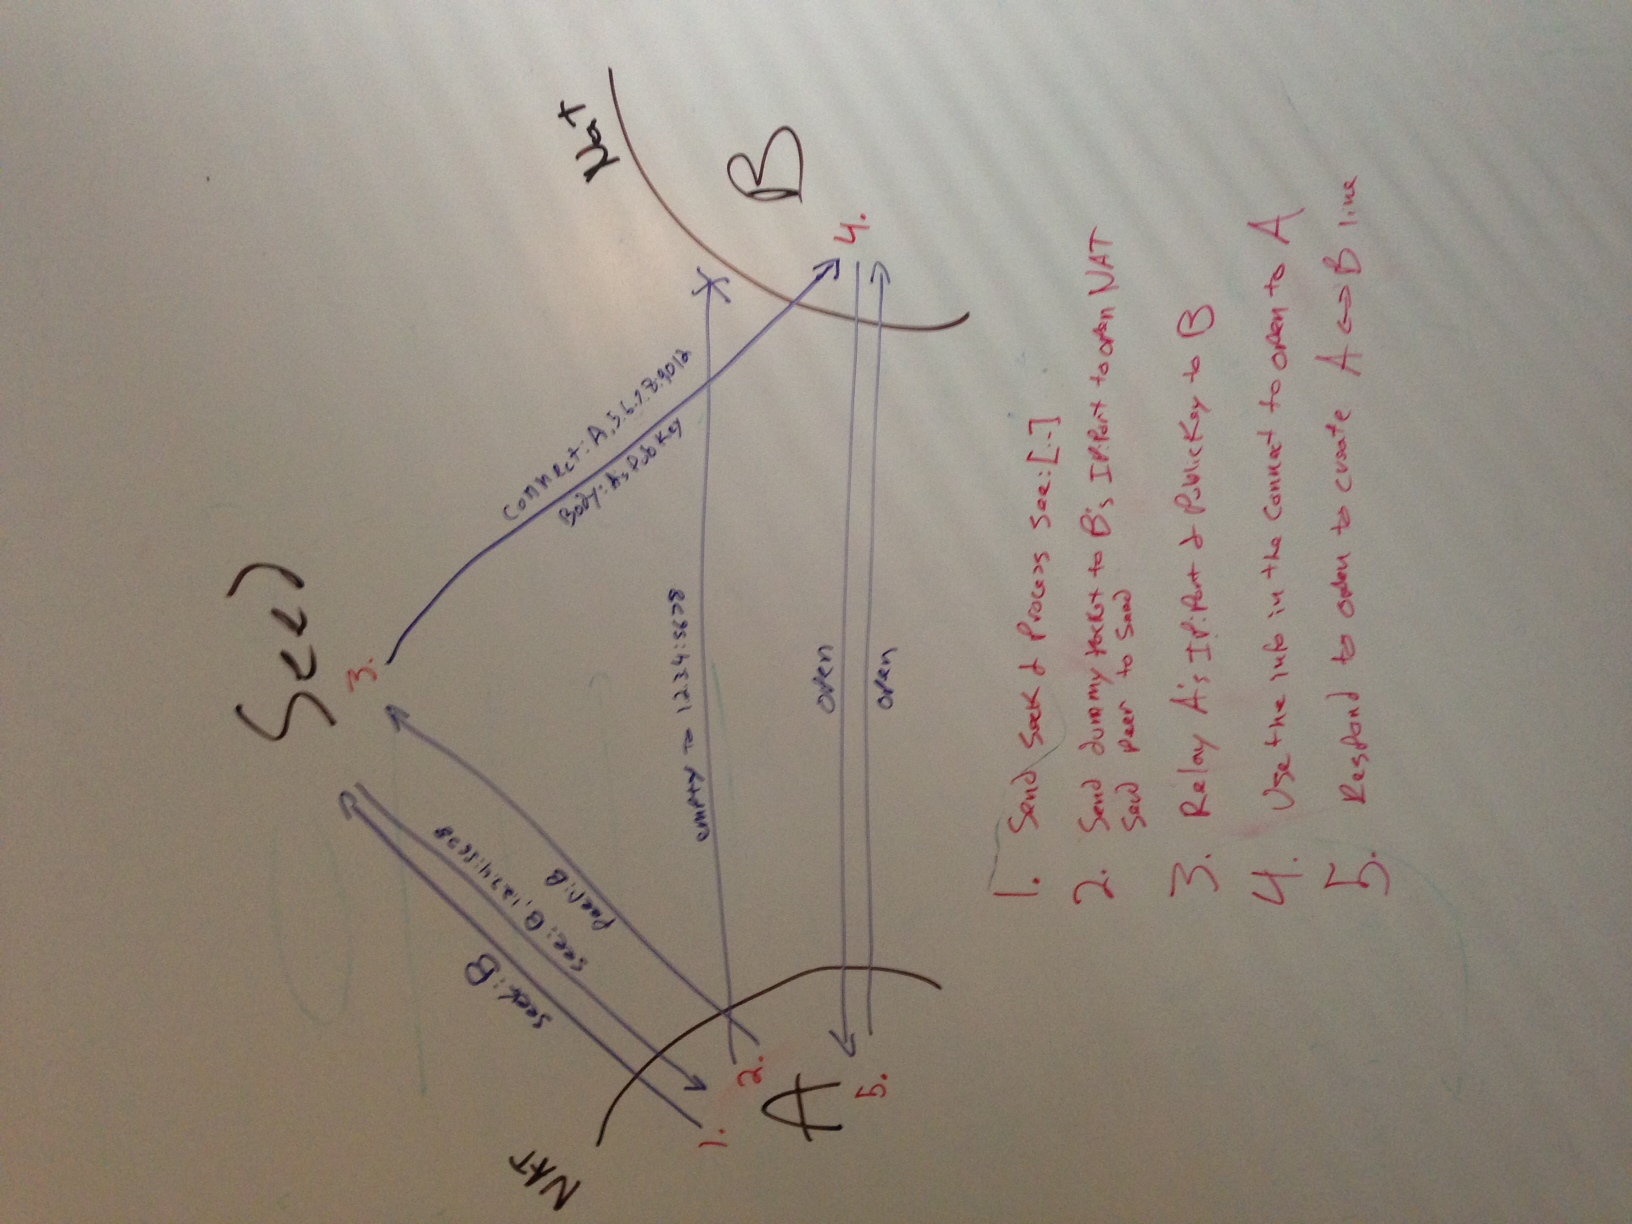 Seed
3.
seek: B
see: B, 1.2.3.4:5678
peer: B
NAT
connect: A, 5.6.7.8:9012
Body: A's Pub Key
Nat
empty to 1.2.3.4:5678
1.
2.
A
B
open
4.
5.
open
1. Send Seek & Process see:[..]
2. Send dummy packet to B's IP:Port to open NAT
Send peer to Seed
3. Relay A's IP:Port & Public Key to B
4. Use the info in the connect to open to A
5. Respond to open to create A <-> B line